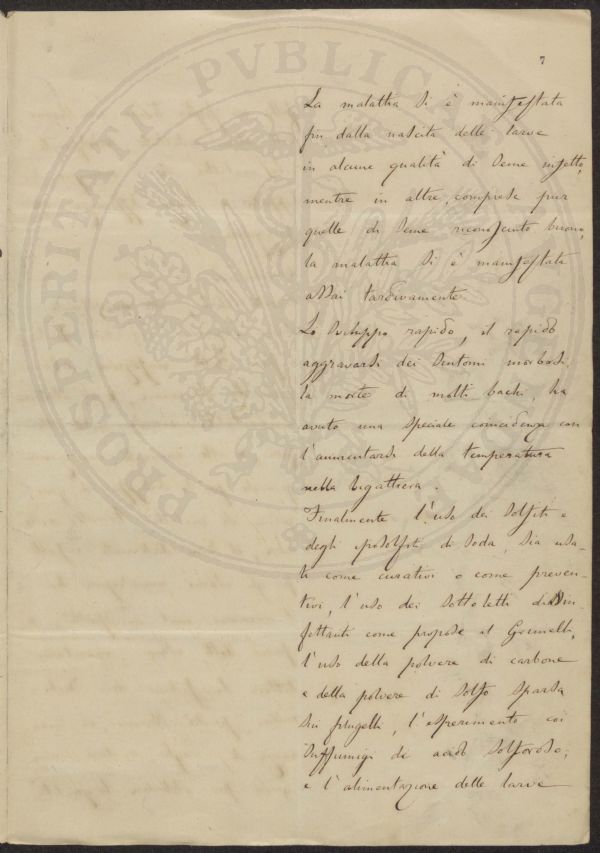 7
La malattia si è manifestata
fin dalla nascita delle larve
in alcune qualità di seme infetto,
mentre in altre, comprese pur
quelle di seme riconosciuto buono,
la malattia si è manifestata
assai tardivamente.
Lo sviluppo rapido, il rapido
aggravarsi dei sintomi morbosi,
la morte di molti bachi, ha
avuto una speciale coincidenza con
l'aumentarsi della temperatura
nella bigattiera.
Finalmente l'uso dei solfiti e
degli iposolfiti di soda, sia usa-
ti come curativi o come preven-
tivi, l'uso dei sottoletti disin-
fettanti come propose il
l'uso della polvere di carbone
e della polvere di solfo sparsa
sui filugelli, l'esperimento coi
suffumigi di acido solforoso,
e l'alimentazione delle larve
PROSPERITATI PVBLICAE